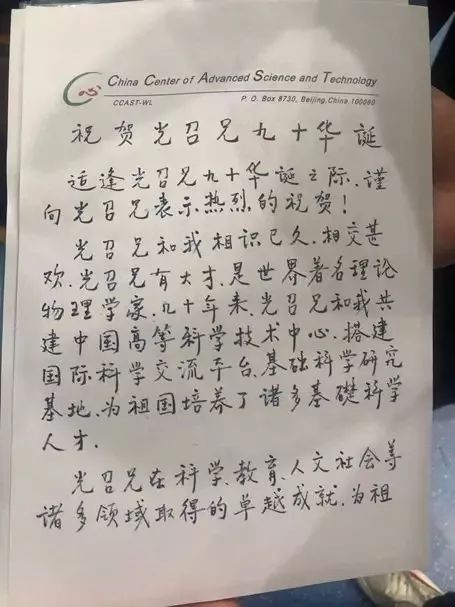 China Center of Advanced Science and Technology
CCAST-WL P. O. Box 8730, Beijing, China 100080
祝贺光召兄九十华诞
适逢光召兄九十华诞之际,谨
向光召兄表示热烈的祝贺!
光召兄和我相识已久,相交甚
欢.光召兄有大才,是世界著名理论
物理学家.几十年来,光召兄和我共
建中国高等科学技术中心,搭建
国际科学交流平台、基础科学研究
基地、为祖国培养了诸多基礎科学
人才.
光召兄在科学、教育、人文社会等
諸多领域取得的卓越成就,为祖